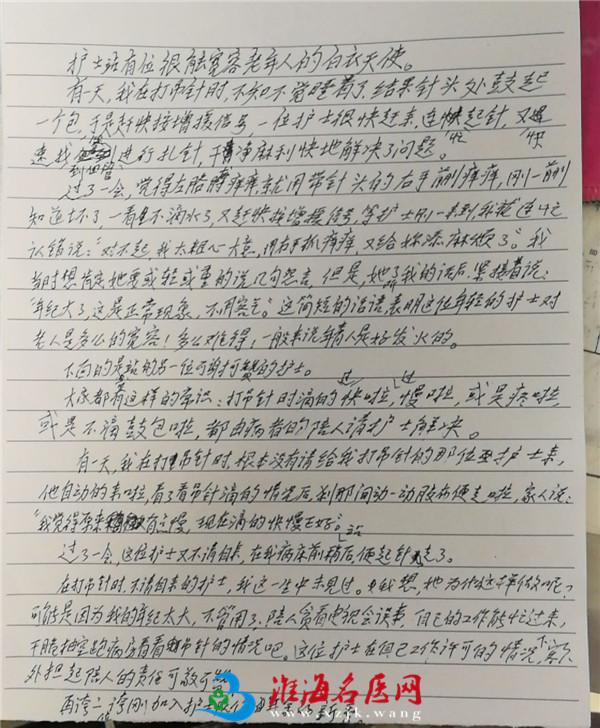 护士站有位很能宽容老年人的白衣天使。
有一天，我在打吊针时，不知不觉睡着了，结果针头处鼓起
一个包，于是赶快按增援信号，一位护士很快赶来，连忙起针，又快
速找到血管进行扎针，干净麻利快地解决了问题。
过了一会，觉得左胳膊痒痒就用带针头的右手前到痒痒，刚一前到
知道坏了，一看是不滴水了，又赶快按增援信号，等护士刚一来到，我就连忙
认错说："对不起，我太粗心大意，用右手抓痒痒又给你添麻烦了。"我
当时想肯定她要或轻或重的说几句怨言，但是，她听了我的话后，紧接着说：
"年纪大了，这是正常现象，不用客气。"这简短的话语表明这位年轻的护士对
老人是多么的宽容！多么难得，一般来说年青人是好发火的。
不同的是站的另一位可前可的护士。
大家都有这样的常识：打吊针时滴的过快啦，过慢啦，或是疼啦，
或是不滴鼓包啦，都由病者的陪人请护士解决。
有一天，我在打吊针时，根本没有请给我打吊针的那位护士来，
他自动的来啦，看了看吊针滴的情况后，刹那间动一动胶布便走啦，家人说：
"我觉得原来有点慢，现在滴的快慢正好。"
过了一会，这位护士又不请自来，在我病床前稍后，便起针走了。
在打吊针时，不请自来的护士，我这一生中未见过。我想，她为什么这样做呢？
可能是因为我的年纪太大，不管用了，陪人贪看电视会误事，自己的工作能忙过来，
干脆抽空到病房看看吊针的情况吧。这位护士在自己工作许可的情况下，额
外担起陪人的责任可敬可
再夸一夸刚加入护士
淮海名医网
.wang